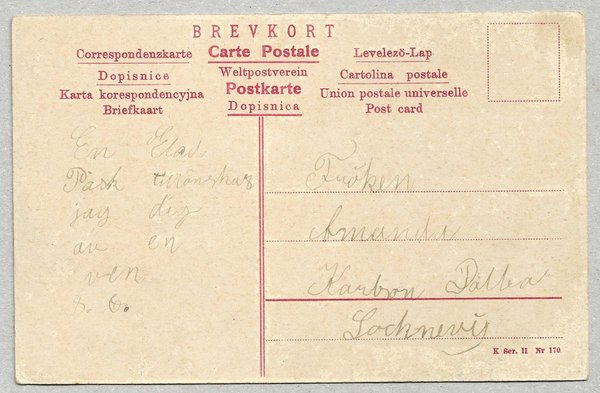 BREVKORT
Correspondenzkarte Carte Postale Levelező-Lap
Dopisnice Weltpostverein Cartolina postale
Karta korespondencyjna Postkarte Union postale universelle
Briefkaart Dopisnica Post card
En Glad
Påsk tillönskas
jag dig
av en
ven
Fröken
Amanda
Locknevi
K Ser. II Nr 170